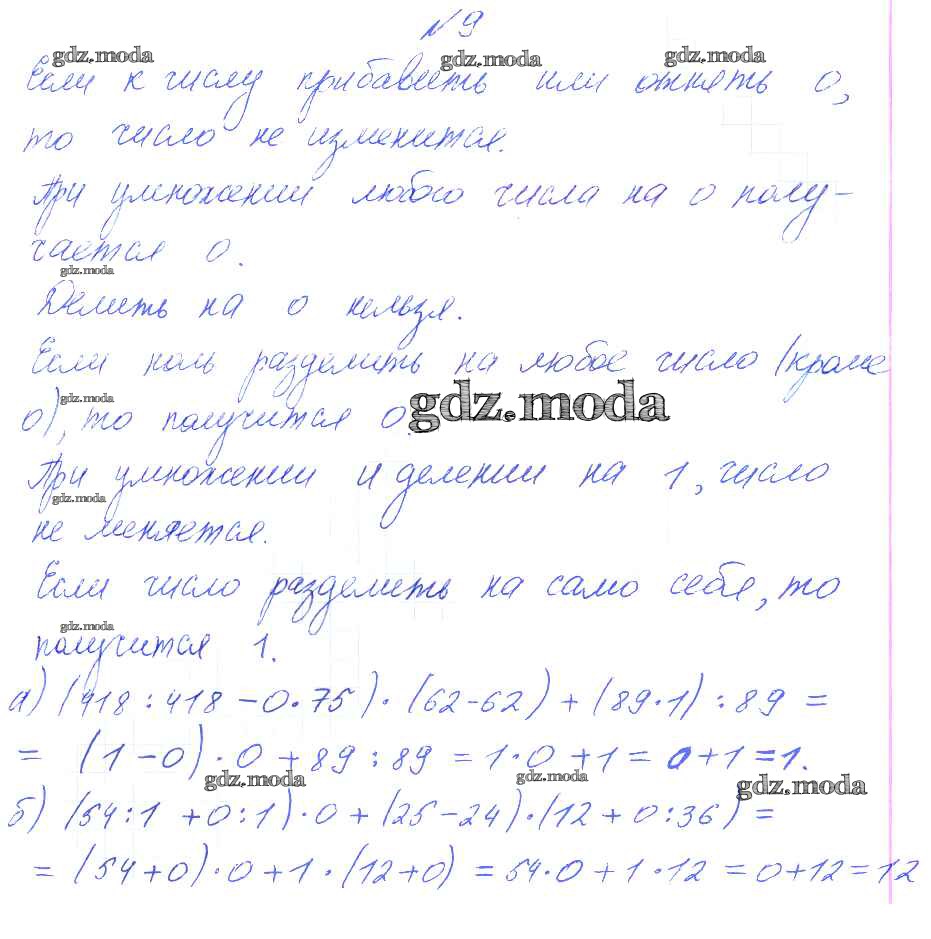 № 9
gdz.moda gdz.moda gdz.moda
Если к числу прибавить или отнять 0,
то число не изменится.
При умножении любого числа на 0 полу-
чается 0.
gdz.moda
Делить на 0 нельзя.
Если ноль разделить на любое число (кроме
gdz.moda
gdz.moda
0), то получится 0.
При умножении и делении на 1, число
gdz.moda
не меняется.
Если число разделить на само себя, то
gdz.moda
получится 1.
а) (418 : 418 - 0 · 75) · (62 - 62) + (89 · 1) : 89 =
= (1 - 0) · 0 + 89 : 89 = 1 · 0 + 1 = 0 + 1 = 1.
gdz.moda gdz.moda gdz.moda
б) (54 : 1 + 0 : 1) · 0 + (25 - 24) · (12 + 0 : 36) =
= (54 + 0) · 0 + 1 · (12 + 0) = 54 · 0 + 1 · 12 = 0 + 12 = 12